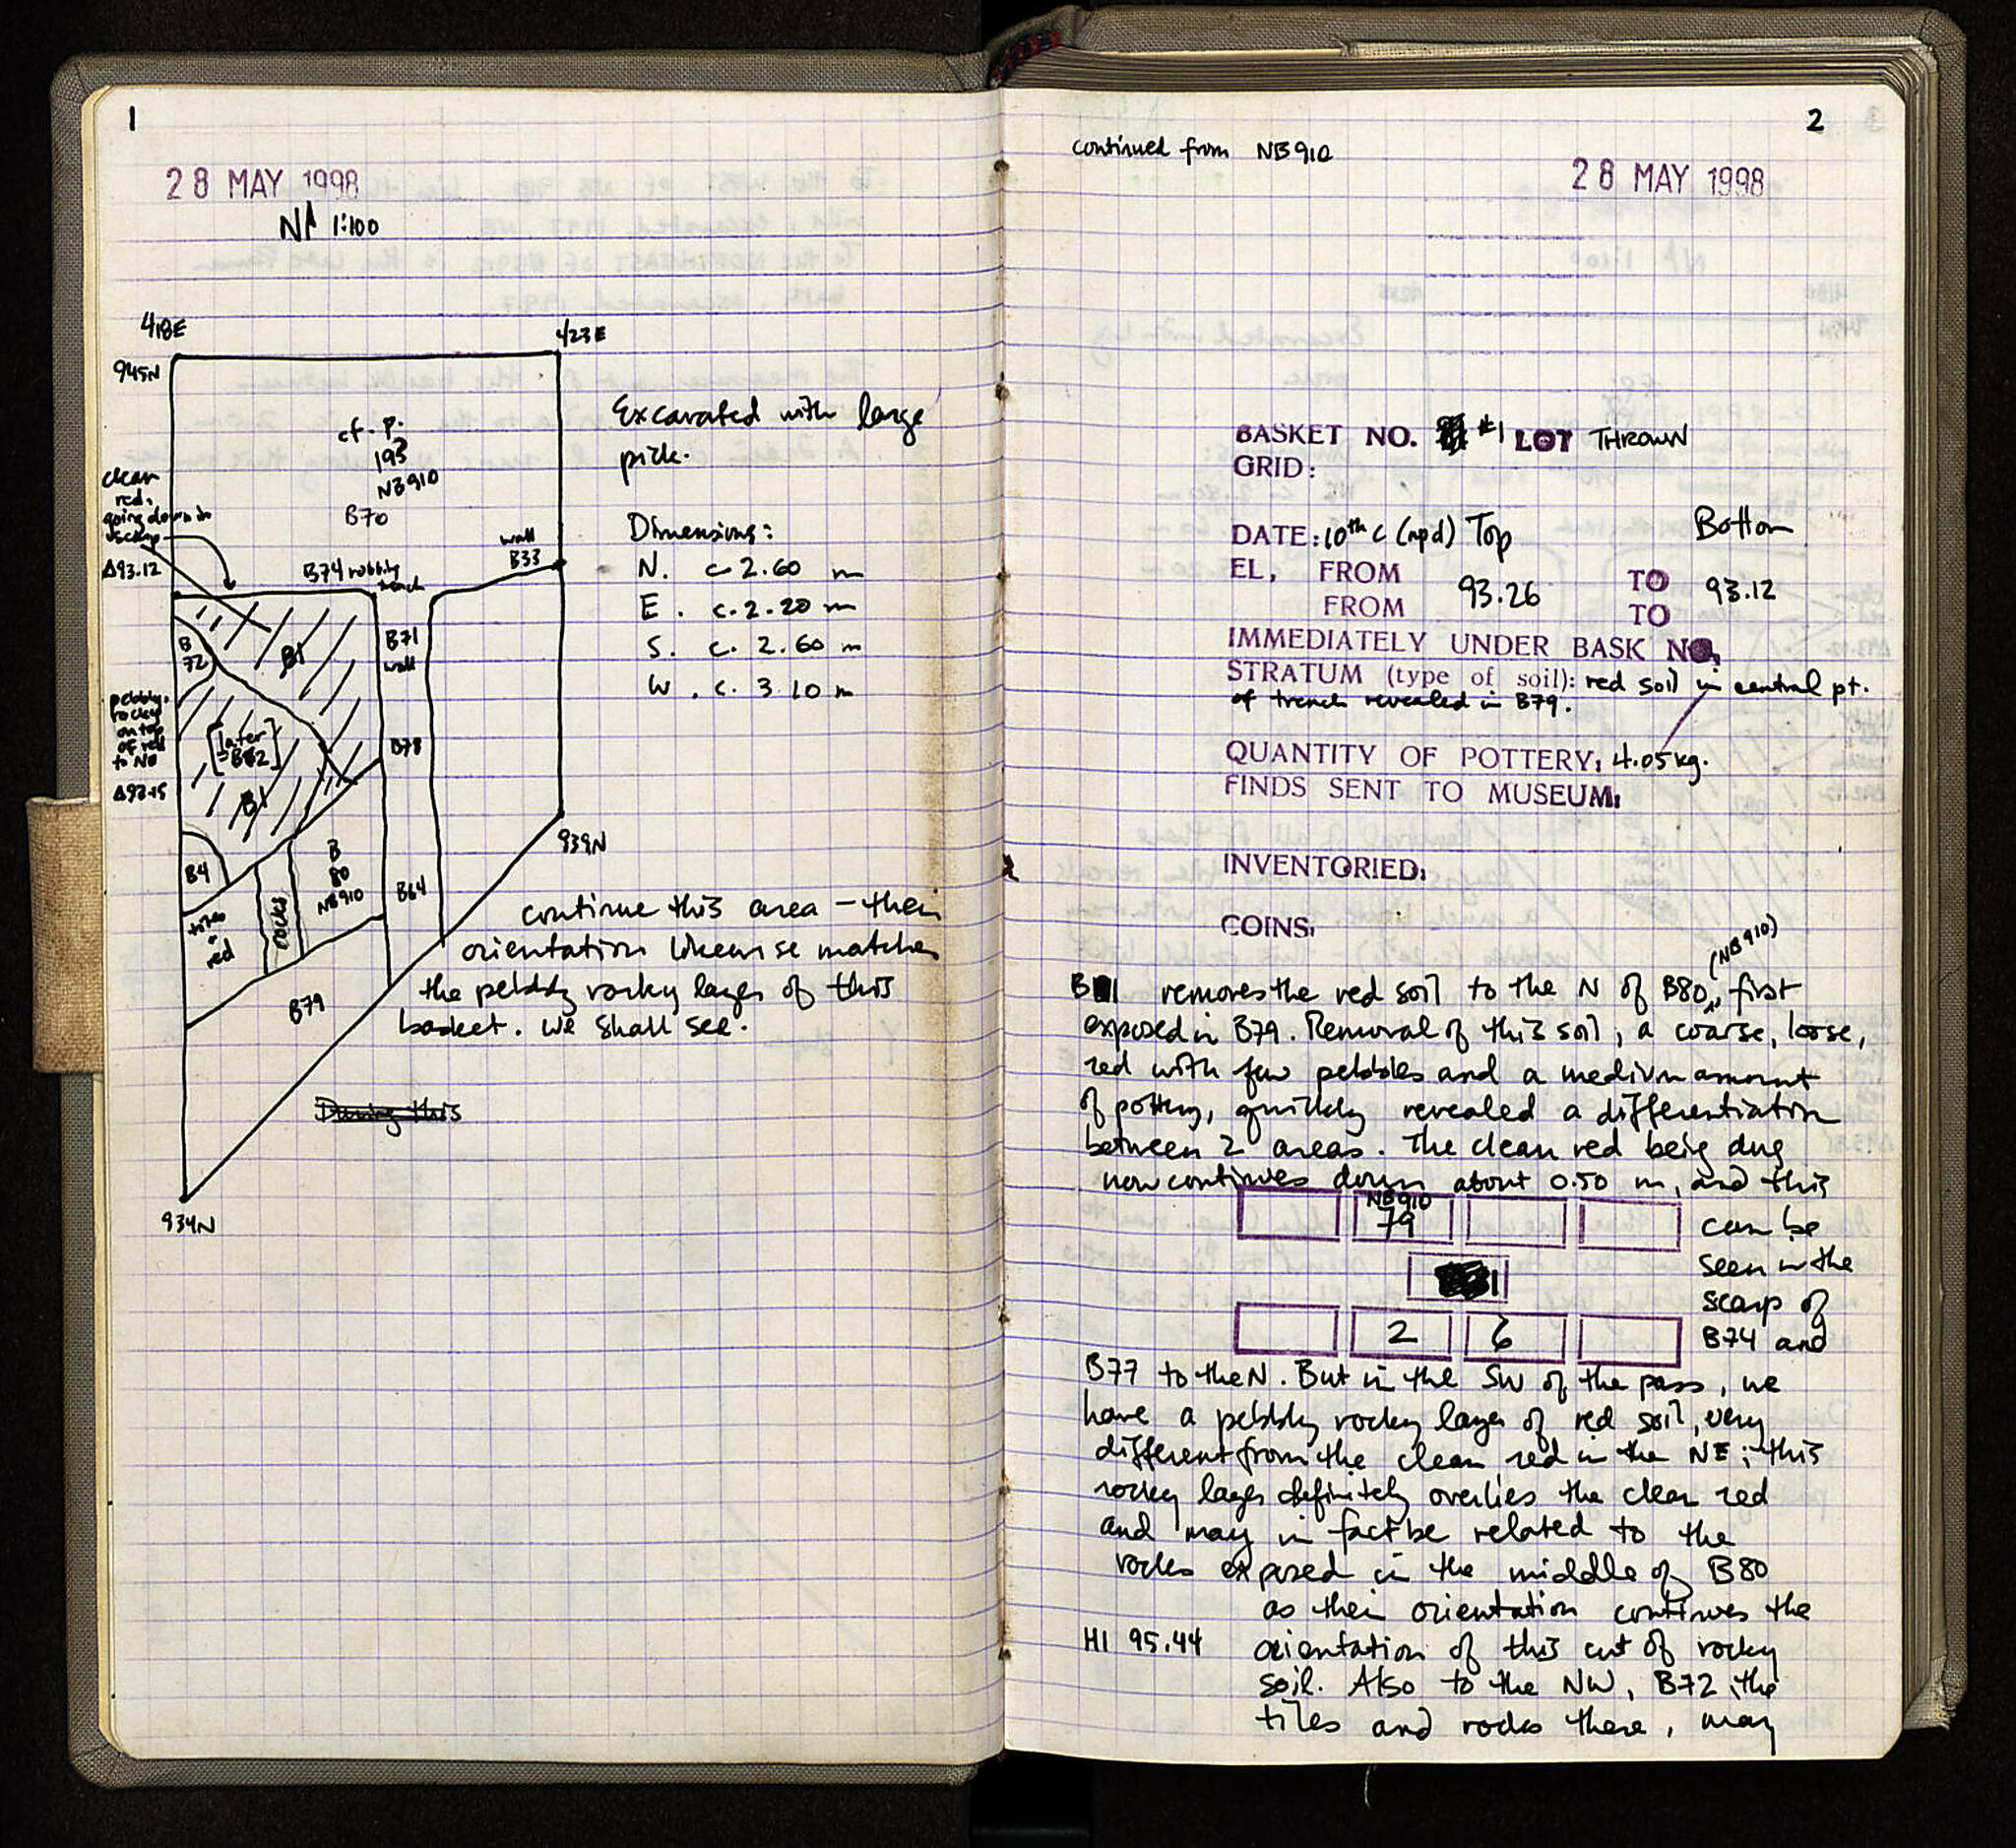 1
28 MAY 1998
N 1:100
418E
423E
945N
cf. p.
193
NB910
B70
clean
red,
going down in
scarp
Δ93.12
B74 robbing
trench
wall
B33
B
72
B1
B71
wall
pebbly,
rocky
on top
of red
to NE
[later
=B82]
B78
B1
939N
B4
B
80
NB910
B64
tiles
+
red
rocks
B79
934N
Excavated with large
pick.
Dimensions:
N. c 2.60 m
E. c. 2.20 m
S. c. 2.60 m
W. c. 3.10 m
continue this area – their
orientation likewise matches
the pebbly rocky layer of this
basket. We shall see.
During this
2
continued from NB910
28 MAY 1998
BASKET NO. #1 LOT THROWN
GRID:
DATE: 10th c (npd) Top Bottom
EL, FROM 93.26 TO 93.12
FROM TO
IMMEDIATELY UNDER BASK NO,
STRATUM (type of soil): red soil in central pt.
of trench revealed in B79.
QUANTITY OF POTTERY, 4.05 kg.
FINDS SENT TO MUSEUM,
INVENTORIED,
COINS,
(NB910)
B1 removes the red soil to the N of B80, first
exposed in B79. Removal of this soil, a coarse, loose,
red with few pebbles and a medium amount
of pottery, quickly revealed a differentiation
between 2 areas. The clean red being dug
now continues down about 0.50 m, and this
NB910
79 can be
seen in the
1
scarp of
2 6 B74 and
B77 to the N. But in the SW of the pass, we
have a pebbly rocky layer of red soil, very
different from the clean red in the NE; this
rocky layer definitely overlies the clean red
and may in fact be related to the
rocks exposed in the middle of B80
as their orientation continues the
HI 95.44 orientation of this cut of rocky
soil. Also to the NW, B72, the
tiles and rocks there, may